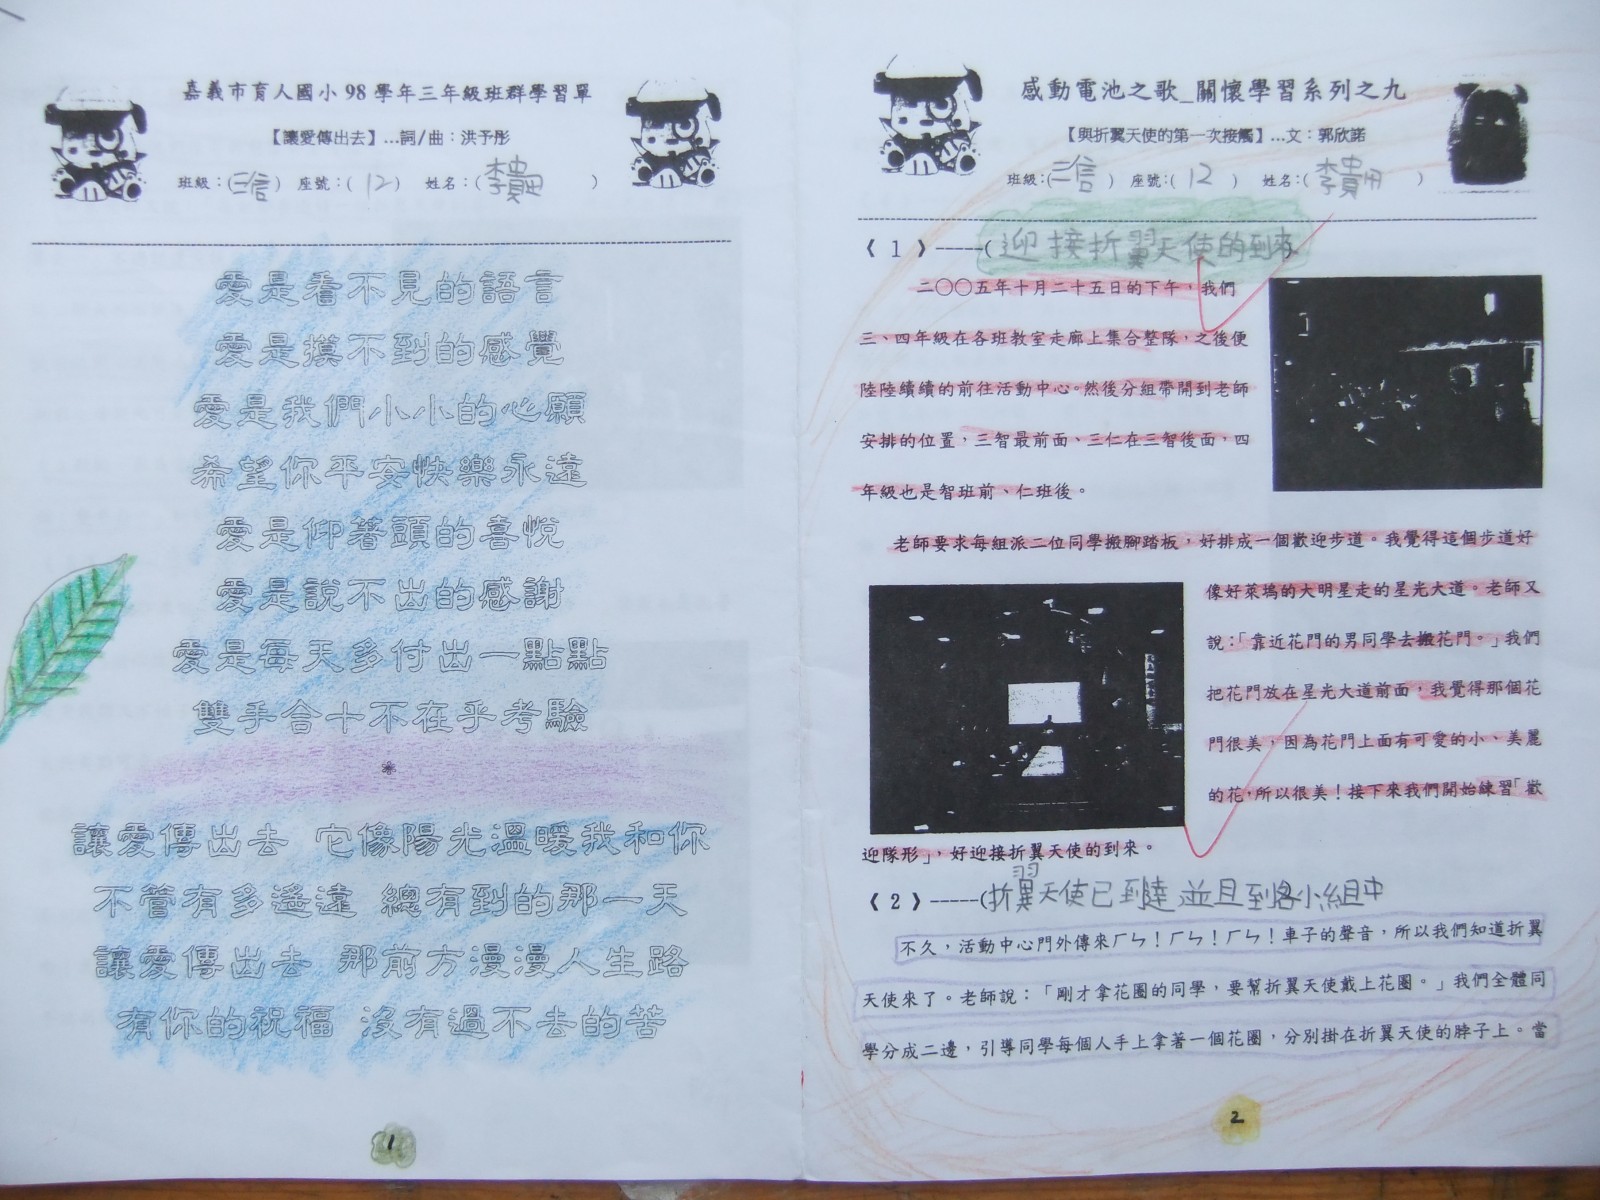 嘉義市育人國小98學年三年級班群學習單
【讓愛傳出去】…詞/曲：洪予彤
班級：(三信) 座號：(12) 姓名：(李貴
愛是看不見的語言
愛是摸不到的感覺
愛是我們小小的心願
希望你平安快樂永遠
愛是仰著頭的喜悅
愛是說不出的感謝
愛是每天多付出一點點
雙手合十不在乎考驗
*
讓愛傳出去 它像陽光溫暖我和你
不管有多遙遠 總有到的那一天
讓愛傳出去 那前方漫漫人生路
有你的祝福 沒有過不去的苦
1
感動電池之歌_關懷學習系列之九
【與折翼天使的第一次接觸】…文：郭欣諾
班級：(三信) 座號：(12) 姓名：(李貴
《1》-----(迎接折翼天使的到來
二〇〇五年十月二十五日的下午，我們
三、四年級在各班教室走廊上集合整隊，之後便
陸陸續續的前往活動中心。然後分組帶開到老師
安排的位置，三智最前面、三仁在三智後面，四
年級也是智班前、仁班後。
老師要求每組派二位同學搬腳踏板，好排成一個歡迎步道。我覺得這個步道好
像好萊塢的大明星走的星光大道。老師又
說：「靠近花門的男同學去搬花門。」我們
把花門放在星光大道前面，我覺得那個花
門很美，因為花門上面有可愛的小、美麗
的花，所以很美！接下來我們開始練習「歡
迎隊形」，好迎接折翼天使的到來。
《2》-----(折翼天使已到達並且到各小組中
不久，活動中心門外傳來ㄏㄣ！ㄏㄣ！ㄏㄣ！車子的聲音，所以我們知道折翼
天使來了。老師說：「剛才拿花圈的同學，要幫折翼天使戴上花圈。」我們全體同
學分成二邊，引導同學每個人手上拿著一個花圈，分別掛在折翼天使的脖子上。當
2